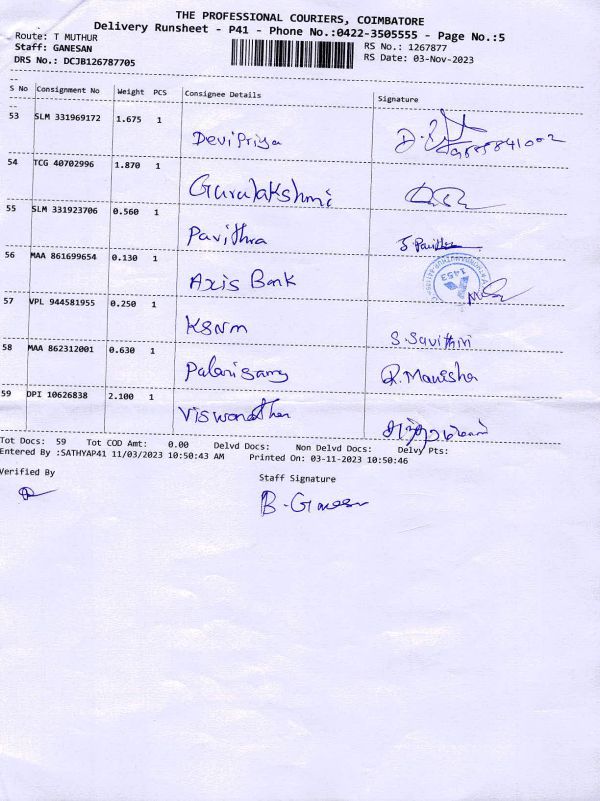 THE PROFESSIONAL COURIERS, COIMBATORE
Delivery Runsheet - P41 - Phone No.:0422-3505555 - Page No.:5
Route: T MUTHUR RS No.: 1267877
Staff: GANESAN RS Date: 03-Nov-2023
DRS No.: DCJB126787705
S No Consignment No Weight PCS Consignee Details Signature
53 SLM 331969172 1.675 1 Devi Priya
54 TCG 40702996 1.870 1 Gurulakshmi
55 SLM 331923706 0.560 1 Pavithra
56 MAA 861699654 0.130 1 Axis Bank 1453
57 VPL 944581955 0.250 1 KSNM S. Savithiri
58 MAA 862312001 0.630 1 Palanisamy R. Manisha
59 DPI 10626838 2.100 1 Viswanathan
Tot Docs: 59 Tot COD Amt: 0.00 Delvd Docs: Non Delvd Docs: Delvy Pts:
Entered By :SATHYAP41 11/03/2023 10:50:43 AM Printed On: 03-11-2023 10:50:46
Verified By Staff Signature
B. Ganesan